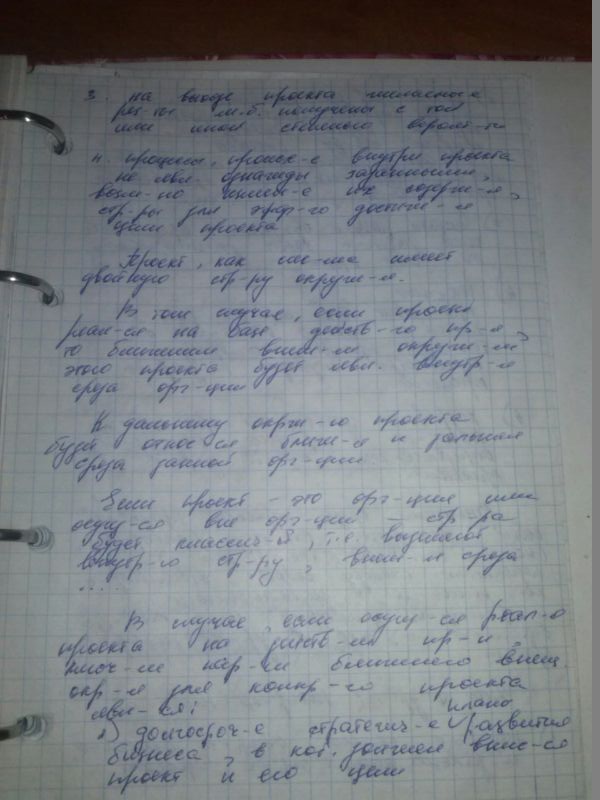 3. на выходе проекта желаемые
рез-ты м.б. получены с той
или иной степенью вероят-ти
4. процессы, происх-е внутри проекта
не явл. однажды заданными,
возм-но измен-е их содерж-я,
стр-ры для эфф-го достиж-я
цели проекта
Проект, как сис-ма имеет
двойную стр-ру окруж-я.
В том случае, если проект
реал-ся на базе действ-го пр-я,
то ближним внеш-м окруж-м
этого проекта будет явл. внутр-я
среда орг-ции
К дальнему окруж-ю проекта
будет относ-ся ближ-я и дальняя
среда данной орг-ции.
Если проект - это орг-ция или
осущ-ся вне орг-ции - стр-ра
будет классич-й, т.е. включает
внутр-ю стр-ру, внеш-я среда
....
В случае, если осущ-ся реал-я
проекта на действ-м пр-и
пар-ми ближнего внеш.
окр-я для конкр-го проекта
явл-ся:
1) долгосроч-е стратегич-е планы развития
бизнеса, в кот. должен впис-ся
проект и его цели